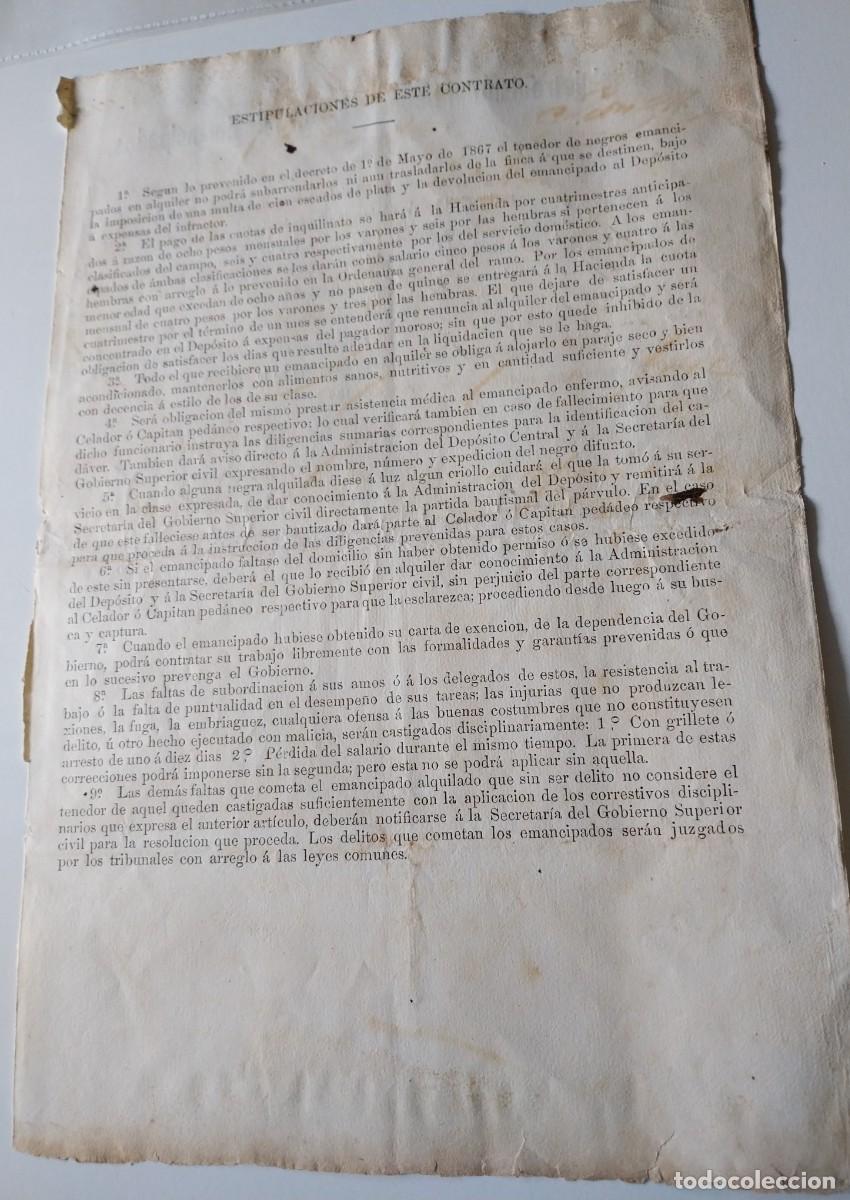 ESTIPULACIONES DE ESTE CONTRATO.
1ª Segun lo prevenido en el decreto de 1º de Mayo de 1867 el tenedor de negros emanci-
pados en alquiler no podrá subarrendarlos ni aun trasladarlos de la finca á que se destinen, bajo
la imposicion de una multa de cien escudos de plata y la devolucion del emancipado al Depósito
á expensas del infractor.
2ª El pago de las cuotas de inquilinato se hará á la Hacienda por cuatrimestres anticipa-
dos á razon de ocho pesos mensuales por los varones y seis por las hembras si pertenecen á los
clasificados del campo, seis y cuatro respectivamente por los del servicio doméstico. A los eman-
cipados de ámbas clasificaciones se les darán como salario cinco pesos á los varones y cuatro á las
hembras con arreglo á lo prevenido en la Ordenanza general del ramo. Por los emancipados de
menor edad que excedan de ocho años y no pasen de quince se entregará á la Hacienda la cuota
mensual de cuatro pesos por los varones y tres por las hembras. El que dejare de satisfacer un
cuatrimestre por el término de un mes se entenderá que renuncia al alquiler del emancipado y será
concentrado en el Depósito á expensas del pagador moroso; sin que por esto quede inhibido de la
obligacion de satisfacer los dias que resulte adeudar en la liquidacion que se le haga.
3ª Todo el que recibiere un emancipado en alquiler se obliga á alojarlo en paraje seco y bien
acondicionado, mantenerlos con alimentos sanos, nutritivos y en cantidad suficiente y vestirlos
con decencia á estilo de los de su clase.
4ª Será obligacion del mismo prestar asistencia médica al emancipado enfermo, avisando al
Celador ó Capitan pedáneo respectivo: lo cual verificará tambien en caso de fallecimiento para que
dicho funcionario instruya las diligencias sumarias correspondientes para la identificacion del ca-
dáver. Tambien dará aviso directo á la Administracion del Depósito Central y á la Secretaría del
Gobierno Superior civil expresando el nombre, número y expedicion del negro difunto.
5ª Cuando alguna negra alquilada diese á luz algun criollo cuidará el que la tomó á su ser-
vicio en la clase expresada, de dar conocimiento á la Administracion del Depósito y remitirá á la
Secretaría del Gobierno Superior civil directamente la partida bautismal del párvulo. En el caso
de que este falleciese antes de ser bautizado dará parte al Celador ó Capitan pedádeo respectivo
para que proceda á la instruccion de las diligencias prevenidas para estos casos.
6ª Si el emancipado faltase del domicilio sin haber obtenido permiso ó se hubiese excedido
de este sin presentarse, deberá el que lo recibió en alquiler dar conocimiento á la Administracion
del Depósito y á la Secretaría del Gobierno Superior civil, sin perjuicio del parte correspondiente
al Celador ó Capitan pedáneo respectivo para que la esclarezca; procediendo desde luego á su bus-
ca y captura.
7ª Cuando el emancipado hubiese obtenido su carta de exencion, de la dependencia del Go-
bierno, podrá contratar su trabajo libremente con las formalidades y garantías prevenidas ó que
en lo sucesivo prevenga el Gobierno.
8ª Las faltas de subordinacion á sus amos ó á los delegados de estos, la resistencia al tra-
bajo ó la falta de puntualidad en el desempeño de sus tareas; las injurias que no produzcan le-
xiones, la fuga, la embriaguez, cualquiera ofensa á las buenas costumbres que no constituyesen
delito, ú otro hecho ejecutado con malicia, serán castigados disciplinariamente: 1.º Con grillete ó
arresto de uno á diez dias 2.º Pérdida del salario durante el mismo tiempo. La primera de estas
correcciones podrá imponerse sin la segunda; pero esta no se podrá aplicar sin aquella.
9ª Las demás faltas que cometa el emancipado alquilado que sin ser delito no considere el
tenedor de aquel queden castigadas suficientemente con la aplicacion de los correstivos discipli-
narios que expresa el anterior artículo, deberán notificarse á la Secretaría del Gobierno Superior
civil para la resolucion que proceda. Los delitos que cometan los emancipados serán juzgados
por los tribunales con arreglo á las leyes comunes.
todocoleccion